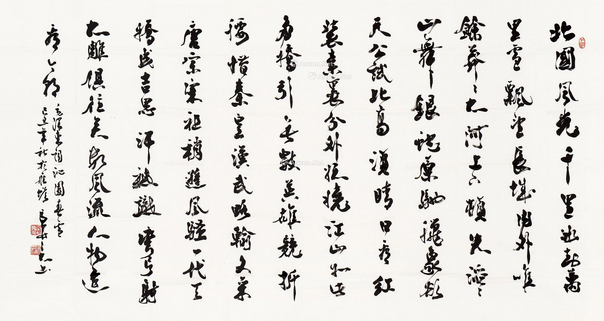 北國風光千里冰封萬
里雪飄望長城內外唯
餘莽々大河上下頓失滔々
山舞銀蛇原馳蠟象欲
天公試比高須晴日看紅
裝素裹分外妖嬈江山如此
多嬌引無數英雄競折
腰惜秦皇漢武略輸文采
唐宗宋祖稍遜風騷一代天
驕成吉思汗祇識彎弓射
大雕俱往矣數風流人物還
看今朝
毛澤東詞沁園春雪